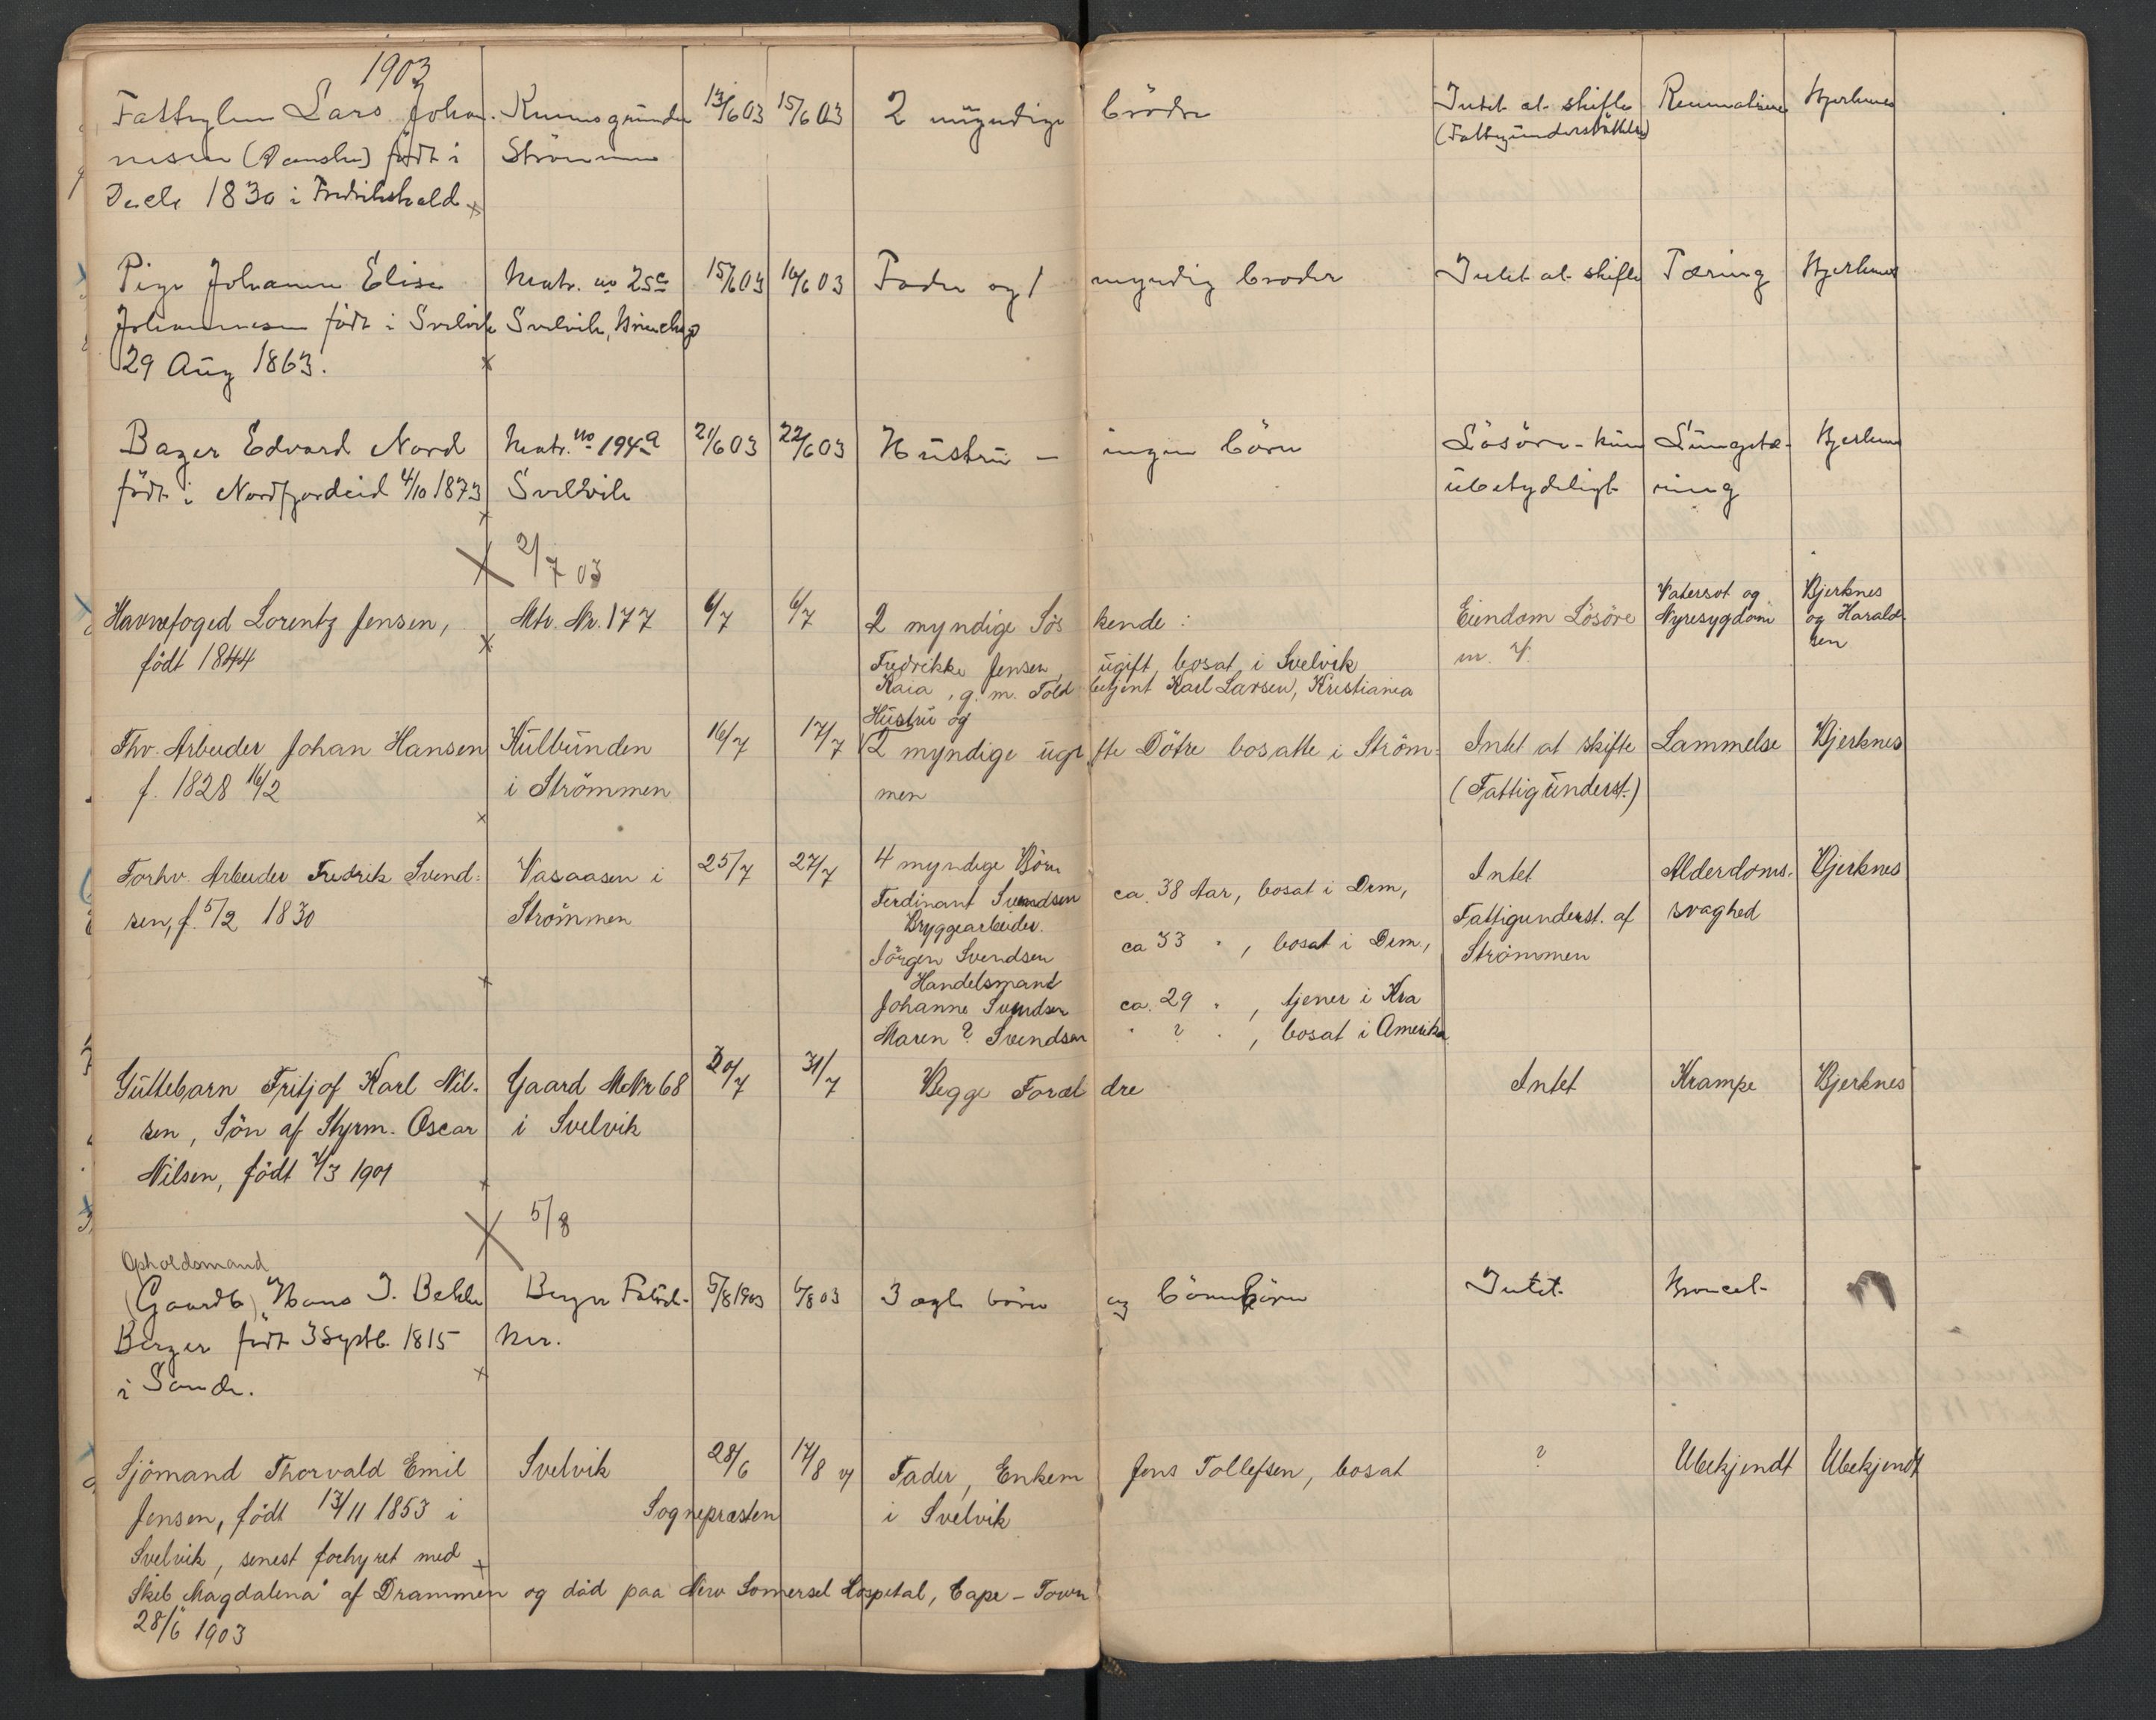 1903
Fattiglem Lars Johan- Krumsgrunden 13/6 03 15/6 03 2 myndige brödre Intet at skifte Reumatisme Bjerknes
nesen (Danske) födt i Strömmen (Fattigunderstöttelse)
Decbr 1830 i Fredrikshald
Pige Johanne Elise Matr. no 25c 15/6 03 16/6 03 Fader og 1 myndig broder Intet at skifte Tæring Bjerknes
Johannesen födt i Svelvik Svelvik,
29 Aug 1863.
Bager Edvard Nord Matr. no 194a 21/6 03 22/6 03 Hustru – ingen börn Lösöre - kun Lungetæ- Bjerknes
födt i Nordfjordeid 4/10 1873 Svelvik ubetydeligt ring
2/7 03
Havnefoged Lorentz Jensen, Mtr. Nr. 177 6/7 6/7 2 myndige Søskende: Eiendom Lösöre Vatersot og Bjerknes
födt 1844 m. v. Nyresygdom og Harald-
sen
Fredrikke Jensen, ugift, bosat i Svelvik
Kaia, g. m. Toldbetjent Karl Larsen, Kristiania
Hustru og
Fhv. Arbeider Johan Hansen Kulbunden 16/7 17/7 2 myndige ugifte Døtre bosatte i Ström- Intet at skifte Lammelse Bjerknes
f. 1828 16/2 i Strömmen men (Fattigunderst.)
Forhv. Arbeider Fredrik Svend- Vasaasen i 25/7 27/7 4 myndige Börn Intet Alderdoms- Bjerknes
sen, f. 5/2 1830 Strømmen Ferdinant Svendsen ca. 38 Aar, bosat i Drm, Fattigunderst. af svaghed
Bryggearbeider.
Jörgen Svendsen ca 33 " , bosat i Drm., Strømmen
Handelsmand
Johanne Svendsen ca. 29 " , tjener i Kra
Maren ? Svendsen " ? " , bosat i Amerika
Guttebarn Fritjof Karl Nil- Gaard MNr 68 30/7 31/7 Begge Forældre Intet Krampe Bjerknes
sen, Sön af Styrm. Oscar i Svelvik
Nilsen, födt 2/3 1901
5/8
Opholdsmand
(Gaardb) Hans J. Bekke Berger 5/8 1903 6/8 03 3 ægte börn og börnebörn Intet
Berger födt 3 Septb. 1815
i Sande.
Sjömand Thorvald Emil Svelvik 28/6 17/8 Fader, Enkem Jens Tollefsen, bosat ? Ubekjendt Ubekjendt
Jensen, födt 13/11 1853 i Sognepræsten i Svelvik
Svelvik, senest forhyret med
Skib "Magdalena" af Drammen og död paa New Somerset Hospital, Cape-Town
28/6 1903